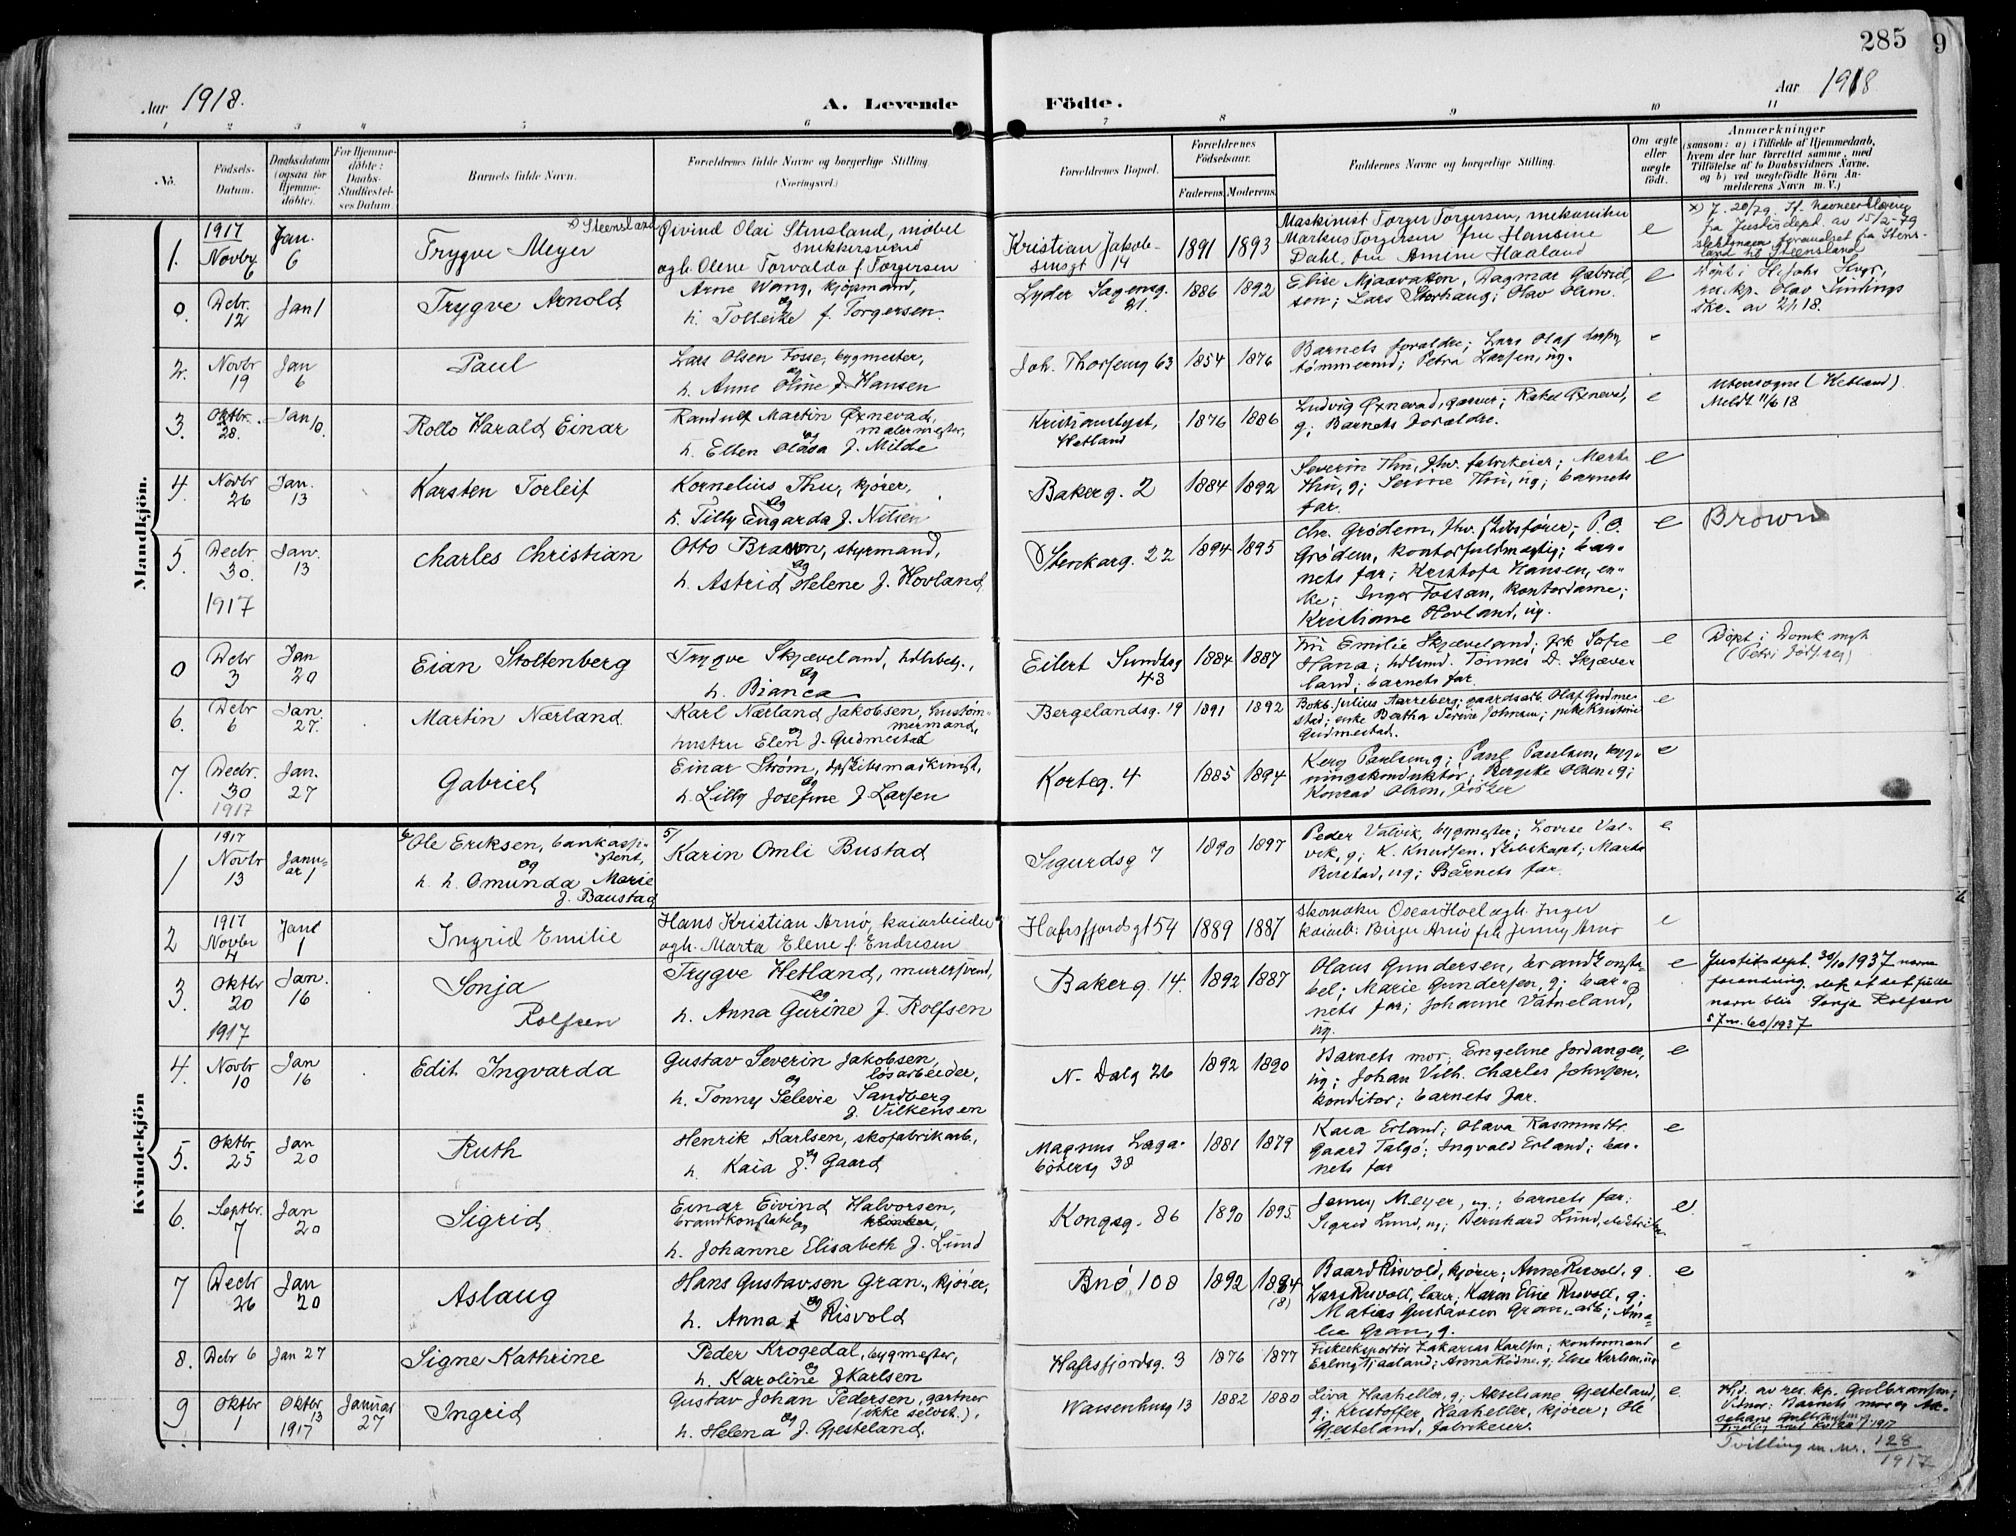 285 9
Aar 1918.
A. Levende
Födte.
Aar 1918
1 2 3 4 5 6 7 8 9 10 11
No.
Födsels-
Datum.
Daabsdatum
(ogsaa for
Hjemme-
döbte).
For Hjemme-
döbte:
Daabs-
Stadfæstel-
ses Datum.
Barnets fulde Navn.
Forældrenes fulde Navne og borgerlige Stilling.
(Næringsvei.)
Forældrenes Bopæl.
Forældrenes
Födselsaar.
Faderens. Moderens.
Faddernes Navne og borgerlige Stilling.
Om ægte
eller
uægte
födt.
Anmærkninger
(saasom: a) i Tilfælde af Hjemmedaab,
hvem der har forrettet samme, med
Tilföielse af to Daabsvidners Navne,
og b) ved uægtefödte Börn An-
melderens Navn m. V.)
Mandkjön.
1.
1917
Novbr
6
Jan.
6
x) Steensland
Trygve Meyer
Øivind Olai Stensland, møbel
snikkersvend
og h. Olene Torvalda f. Torgersen
Kristian Jakob-
sensgt 14
1891 1893
Maskinist Torger Torgersen, mekaniker
Markus Torgersen fru Hansine
Dahl, fru Amine Haaland
e
x) J. 20/79. Jf. navneendring
fra Justisdept. av 15/2-79
slektsnavn forandret fra Stens-
land til Steensland
0.
Debr.
12
Jan 1
Trygve Arnold
Arne Wang, kjøpmand,
og
h. Tolleike f. Torgersen.
Lyder Sagensg.
21.
1886 1892
Elise Mjaavatten, Dagmar Gabriel
sen; Lars Storhaug; Olav Olsen.
e
Døpt i St. Joh. kirke,
res. kp. Olav Sindings
2.
Novbr
19
Jan
6
Paul
Lars Olsen Fosse, bygmester,
og
h. Anne Oline f. Hansen
Joh. Thorsensg 63
1854 1876
Barnets foraldre; Lars Olaf
tømmermd; Petra Larsen, ug.
e
3.
Oktbr.
28.
Jan 6.
Rollo Harald Einar
Randulf Martin Øxnevad,
malermester,
og
h. Ellen Olåsa f. Milde
Kristianslyst,
Hetland
1876 1886
Ludvig Øxnevad, garver; Rakel Øxnevad,
g; Barnets foraldre.
e
Utensogns (Hetland)
Meldt 11/6 18
4.
Novbr
26
Jan.
13
Karsten Torleif
Kornelius Thu, kjører,
og
h. Tilly Engarda f. Nilsen
Bakerg. 2
1884 1892
Severin Thu, fhv. fabrikeier; Marta
Thu, g; Serine Thu, ug; barnets
far.
e
5.
Decbr.
30.
1917
Jan.
13
Charles Christian
Otto Brown, styrmand,
og
h. Astrid Helene f. Hovland
Stenkarg. 22
1894 1895
Chr. Grødem, fhv. skibsfører; P. O.
Grødem, kontorfuldmægtig; bar-
nets far; Kristofa Hansen, en-
ke; Inger Fossan, kontordame;
Kristiane Hovland, ug.
e
Brown
0
Debr
3
Jan
20
Eian Stoltenberg
Trygve Skjæveland, hdlsbetj.,
og
h. Bianca
Eilert Sundtsg
43
1884 1887
Fru Emilie Skjæveland; frk Sofie
Hana; hdlsmd. Tønnes D. Skjæve
land; barnets far.
e
Døpt i Domk
(Petri
6.
Debr
6
Jan.
27.
Martin Nærland
Karl Nærland Jakobsen, hustøm-
mermand,
og
hustru Elen f. Gudmestad
Bergelandsg. 19
1891 1892
Bokb. Julius Aarreberg; gaardsarb. Olaf Gudme-
stad; enke Bertha Serine Johnsen; pike Kristine
Gudmestad.
e
7.
Decbr.
30
1917
Jan.
27
Gabriel
Einar Strøm, skibsmaskinist,
og
h. Lilly Josefine f. Larsen
Korteg. 4
1885 1894
Paul Paulsen, byg-
ningskonduktør; Bergitte Olsen, g;
Konrad Olsen, fisker
e
Kvindekjön
1
1917
Novbr
13
Janu-
ar 1
6/ Ole Eriksen, bankassi-
stent,
og
h. h. Omunda Marie
f. Baustad
5/
Karin Omli Bustad
Sigurdsg 7
1890 1897
Peder Valvik, bygmester; Lovise Val-
vik, g; K. Knudsen, skibskapt; Marta
Bustad, ug; Barnets far.
e
2
1917
Novbr
4
Jan
1
Ingrid Emilie
Hans Kristian Arnø, kaiarbeider
og h. Marta Elene f. Endresen
Hafrsfjordsgt 54
1889 1887
Skomaker Oscar Hoel og h. Inger
kaiarb. Birger Arnø frk Jenny Arnø
e
3.
Oktbr
20
1917
Jan.
16
Sonja
Rolfsen
Trygve Hetland, murersvend,
og
h. Anna Gurine f. Rolfsen
Bakerg. 14.
1892 1887
Olaus Gundersen, brandkonsta-
bel; Marie Gundersen, g; bar-
nets far; Johanne Vatneland,
ug.
e
Justitsdept. 30/10 1937 navne
forandring, slik at det fulde
navn blir Sonja Rolfsen
J.nr. 60/1937
4.
Novbr
10
Jan
16
Edit Ingvarda
Gustav Severin Jakobsen,
løsarbeider,
og
h. Tonny Selevie Sandberg
f. Vilkensen
N. Dalg 26
1892 1890
Barnets mor; Engeline Jordanger,
ug; Johan Vilh. Charles Johnsen,
konditor; barnets far.
e
5.
Oktbr
25
Jan
20
Ruth
Henrik Karlsen, skofabrikarb.,
og
h. Kaia f. Gaard
Magnus Laga-
bøtersg 38
1881 1879
Kaia Erland; Olava Rasmusdtr.
Gaard Talgø; Ingvald Erland; bar-
nets far
e
6.
Septbr.
7
Jan
20
Sigrid
Einar Eivind Halvorsen,
brandkonstabel,
og
h. Johanne Elisabeth f. Lund
Kongsg. 86
1890 1895
Jenny Meyer, ug; barnets far;
Sigrid Lund, ug; Bernhard Lund, elektriker.
e.
7
Decbr
26
Jan
20
Aslaug
Hans Gustavsen Gran, kjører,
og
h. Anna f Risvold
Bnø 108
1892 1884
(8)
Baard Risvold, kjører; Anne Risvold, g.
Lars Risvold, lærer; Karen Elise Risvold, g;
Matias Gustavsen Gran, arb; Ama-
lia Gran, g.
e
8.
Debr 6
Jan 27
Signe Kathrine
Peder Krogedal, bygmester,
og
h. Karoline f Karlsen
Hafrsfjordsg. 3
1876 1877
Fiskeeksportør Zakarias Karlsen; kontormand
Erling Tjaaland; Anna Rødne, g; Elise Karlsen, ug
e
9
Oktbr
1
Oktbr
13
1917
Januar
27
Ingrid
Gustav Johan Pedersen, gartner
(ikke selvst.),
og
h. Helena f. Gjesteland.
Waisenhusg 13
1882 1880
Liva Haaheller, g; Akseliane Gjesteland,
g; Kristoffer Haaheller, kjører; Ole
Gjesteland, fabrikeier.
e
Hjd. av res. kp. Gulbransen;
Vidner: Barnets mor og Ak-
seliane
Tvilling m. nr. 128
1917